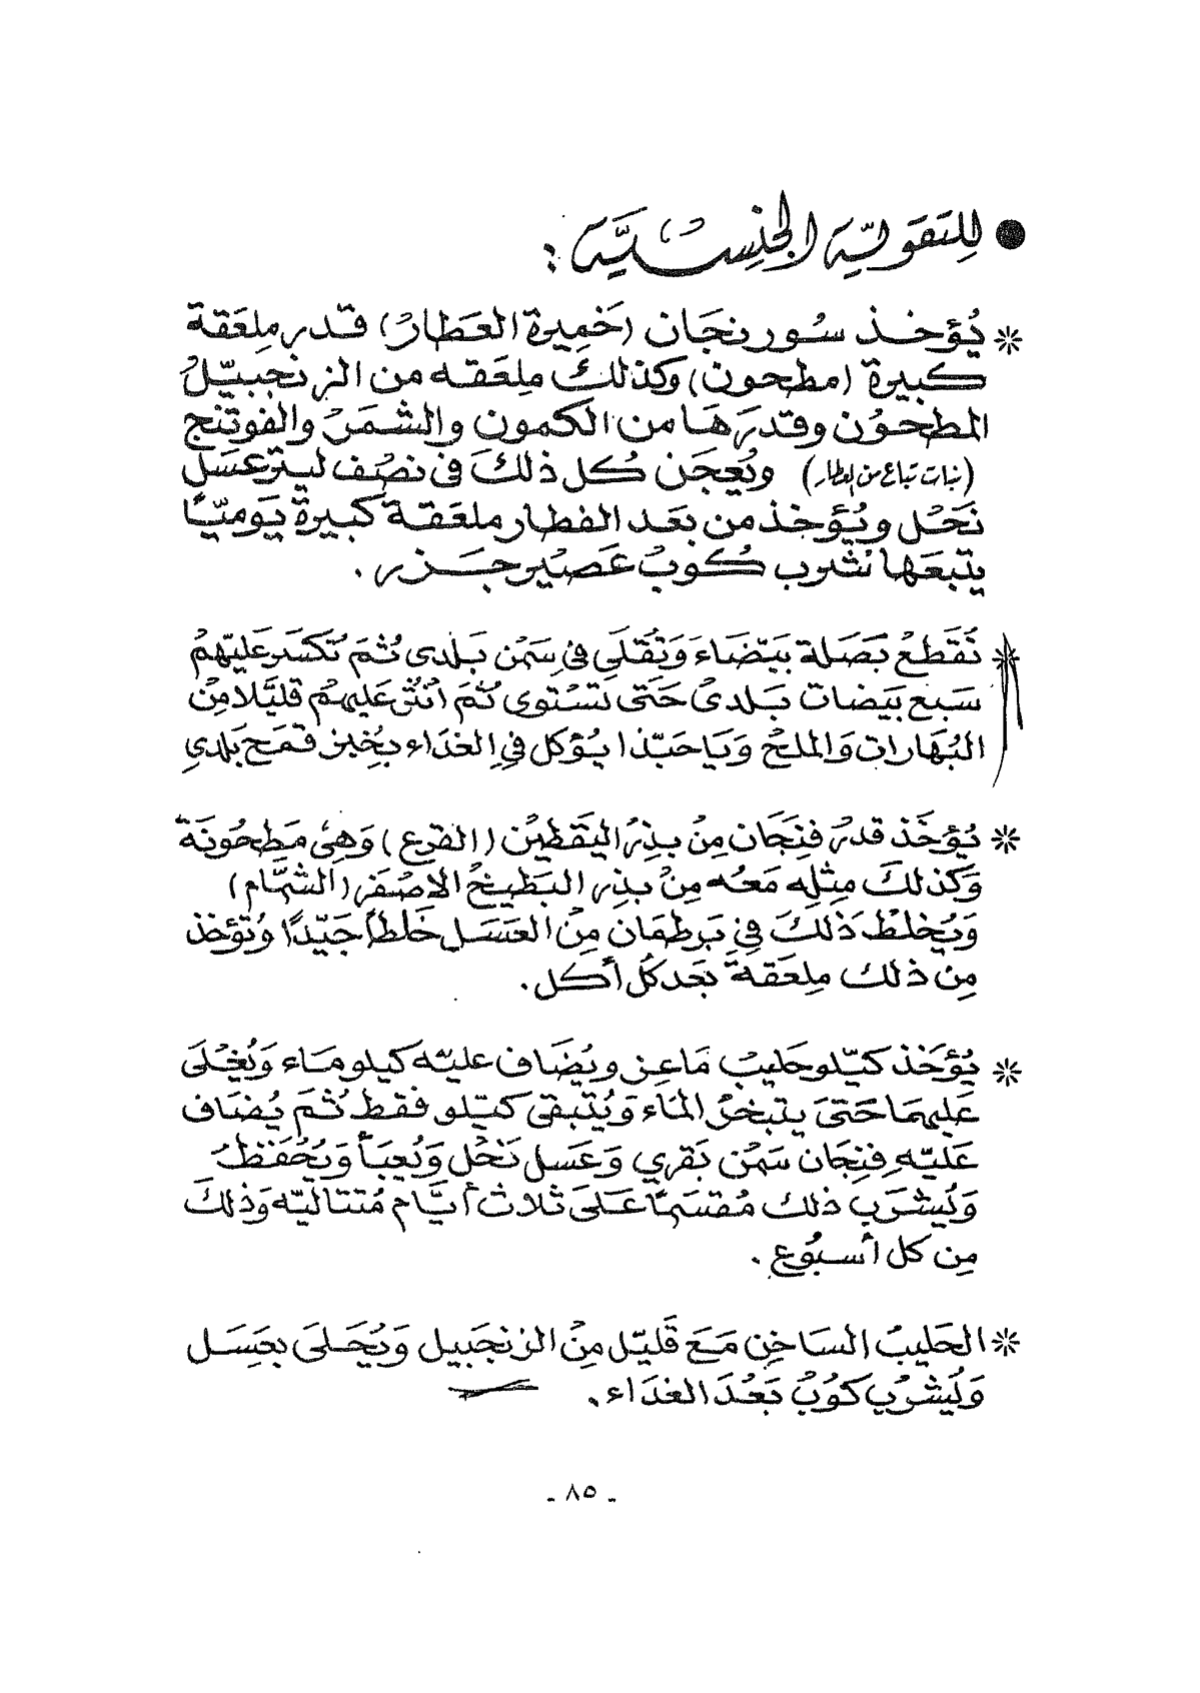 ● لِلتَقَويّه الجِنسْيَّة :
* يُؤخذ سُورنجَان (خَميرة العَطارْ) قدر مِلعَقة
كبيرة (مطحون) وكذلك مِلعَقه من الزنجبيّلُ
المطحوُن وقدرَهَا من الكمون والشمَرْ والفوتنج
(نبات تباع من العطار) ويُعجَن كُل ذلكَ فى نصْف ليتر عسَل
نَحْل ويُؤخذ من بعَد الفطار ملعَقة كبيرة يَوميّاً
يتبعَها شرب كُوبُ عَصْير جَزر .
* تُقَطعْ بَصَلة بَيّضَاءَ وَتُقلَي فىِ سَمْن بَلدى ثُمَ تُكسَر عَليّهمْ
سَبع بَيضات بَلدىْ حَتَى تسْتوى ثُمَ انْثُر عَليهمْ قليَّلا مِنْ
البُهَارات وَالملحْ وَيَا حَبّذا يُؤكل فىِ الغذَاء بخُبز قمَح بَلدىِ
* يُؤخَذ قدرْ فِنجَان مِنْ بذِرْ اليَقطيْن (القرع) وَهِىْ مَطحُونَة
وَكذلكَ مِثلِه مَعُه مِنْ بذِر البَطيخْ الاصْفَر (الشمَّام)
وَيُخلطْ ذَلكَ فىِ بَرطمَان مِنْ العَسَل خَلطاً جَيّدًا وَتُؤخذ
مِن ذلك مِلعَقةَ بَعد كُل أكل .
* يُؤخَذ كيّلو حَليبْ مَاعِز ويُضَاف عليّه كيلو مَاء وَيُغلىَ
عَليهمَا حَتىَ يتبخرْ المَاء وَيُتبقى كيّلو فقط ثُمَ يُضَاف
عَليّه فِنجَان سَمْن بَقري وَعَسل نَحْل وَيُعبَأ وَيُحْفَظْ
وَيُشرَب ذلك مُقسَمًا عَلىَ ثلاث أيَّام مُتتاليّه وَذلكَ
مِن كل أسبُوع .
* الحَليبْ السَاخِن مَعَ قَليّل مِنْ الزنجَبيل وَيُحَلىَ بعَسَل
وَيُشرْب كوُبْ بَعْدَ الغذَاء .
- ٨٥ -